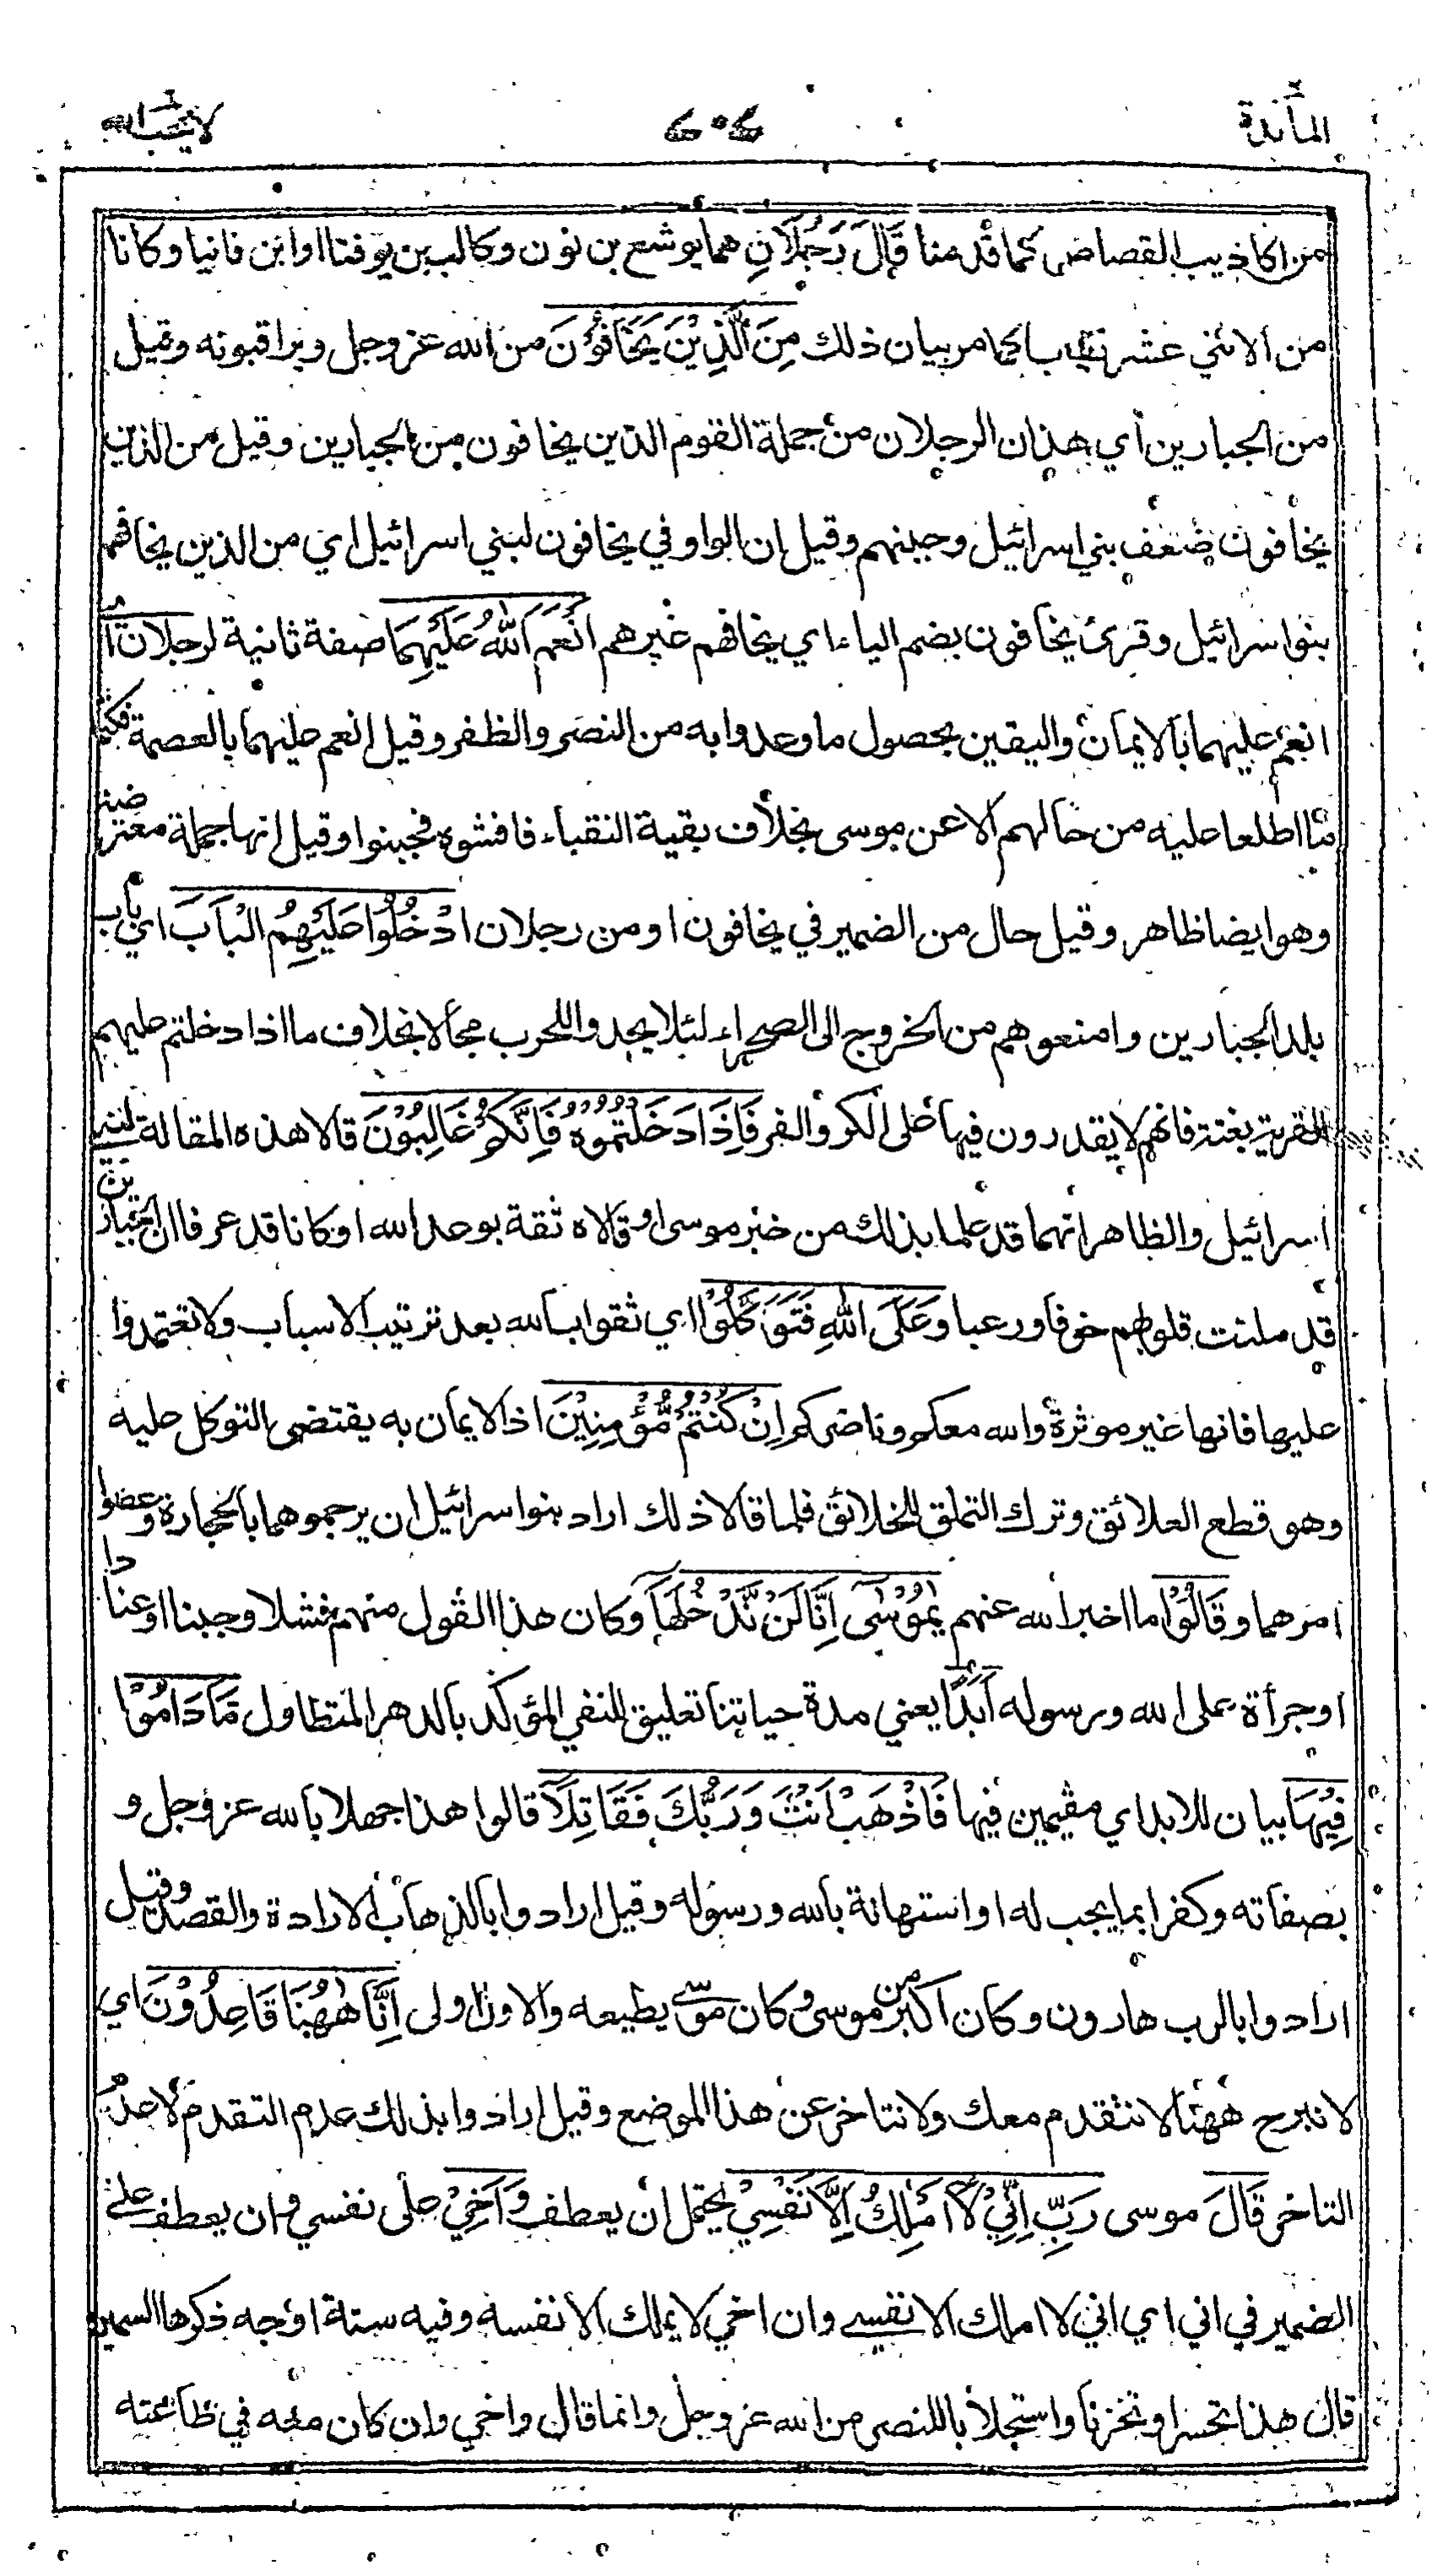 المائدة ٦٠٤ لا يحب الله
من اكاذيب القصاص كما قدمنا قَالَ رَجُلَانِ هما يوشع بن نون وكالب بن يوفنا او ابن فانيا وكانا
من الاثني عشر نقيبا كما مر بيان ذلك مِنَ الَّذِيْنَ يَخَافُوْنَ من الله عز وجل ويراقبونه وقيل
من الجبارين أي هذان الرجلان من جملة القوم الذين يخافون من الجبارين وقيل من الذين
يخافون ضعف بني اسرائيل وجبنهم وقيل ان الواو في يخافون لبني اسرائيل اي من الذين يخافهم
بنوا سرائيل وقرئ يخافون بضم الياء اي يخافهم غيرهم اَنْعَمَ اللّٰهُ عَلَيْهِمَا صفة ثانية لرجلان
انعم عليهما بالايمان واليقين بحصول ما وعدوا به من النصر والظفر وقيل انعم عليهما بالعصمة فكتما
ما اطلعا عليه من حالهم الا عن موسى بخلاف بقية النقباء فافشوه فجبنوا وقيل انها جملة معترضة
وهو ايضا ظاهر وقيل حال من الضمير في يخافون او من رجلان ادْخُلُوْا عَلَيْهِمُ الْبَابَ اي باب
بلد الجبارين وامنعوهم من الخروج الى الصحراء لئلا يجدوا للحرب مجالا بخلاف ما اذا دخلتم عليهم
القرية بغتة فانهم لا يقدرون فيها على الكر والفر فَاِذَا دَخَلْتُمُوْهُ فَاِنَّكُمْ غَالِبُوْنَ قالا هذه المقالة لبني
اسرائيل والظاهر انهما قد علما بذلك من خبر موسى او قالاه ثقة بوعد الله او كانا قد عرفا ان الجبارين
قد ملئت قلوبهم خوفا ورعبا وَعَلَى اللّٰهِ فَتَوَكَّلُوْا اي ثقوا بالله بعد ترتيب الاسباب ولا تعتمدوا
عليها فانها غير موثرة والله معكم وناصركم اِنْ كُنْتُمْ مُّؤْمِنِيْنَ اذ الايمان به يقتضى التوكل عليه
وهو قطع العلائق وترك التملق للخلائق فلما قالا ذلك اراد بنوا سرائيل ان يرجموهما بالحجارة وعصوا
امرهما وقَالُوْا ما اخبر الله عنهم يٰمُوْسٰى اِنَّا لَنْ نَّدْخُلَهَآ وكان هذا القول منهم فشلا وجبنا او عنادا
او جرأة على الله ورسوله اَبَدًا يعني مدة حياتنا تعليق للنفي المؤكد بالدهر المتطاول مَّا دَامُوْا
فِيْهَا بيان للابد اي مقيمين فيها فَاذْهَبْ اَنْتَ وَرَبُّكَ فَقَاتِلَآ قالوا هذا جهلا بالله عز وجل و
بصفاته وكفرا بما يجب له او استهانة بالله ورسوله وقيل ارادوا بالذهاب الارادة والقصد وقيل
ارادوا بالرب هارون وكان اكبر من موسى وكان موسى يطيعه والاول اولى اِنَّا هٰهُنَا قَاعِدُوْنَ اي
لا نبرح ههنا لا نتقدم معك ولا نتاخر عن هذا الموضع وقيل ارادوا بذلك عدم التقدم لا عدم
التاخر قَالَ موسى رَبِّ اِنِّيْ لَآ اَمْلِكُ اِلَّا نَفْسِيْ يحتمل ان يعطف وَاَخِيْ على نفسي وان يعطف على
الضمير في اني اي اني لا املك الا نفسي وان اخي لا يملك الا نفسه وفيه ستة اوجه ذكرها السمين
قال هذا تحسرا وتحزنا واستجلابا للنصر من الله عز وجل وانما قال واخي وان كان معه في طاعته